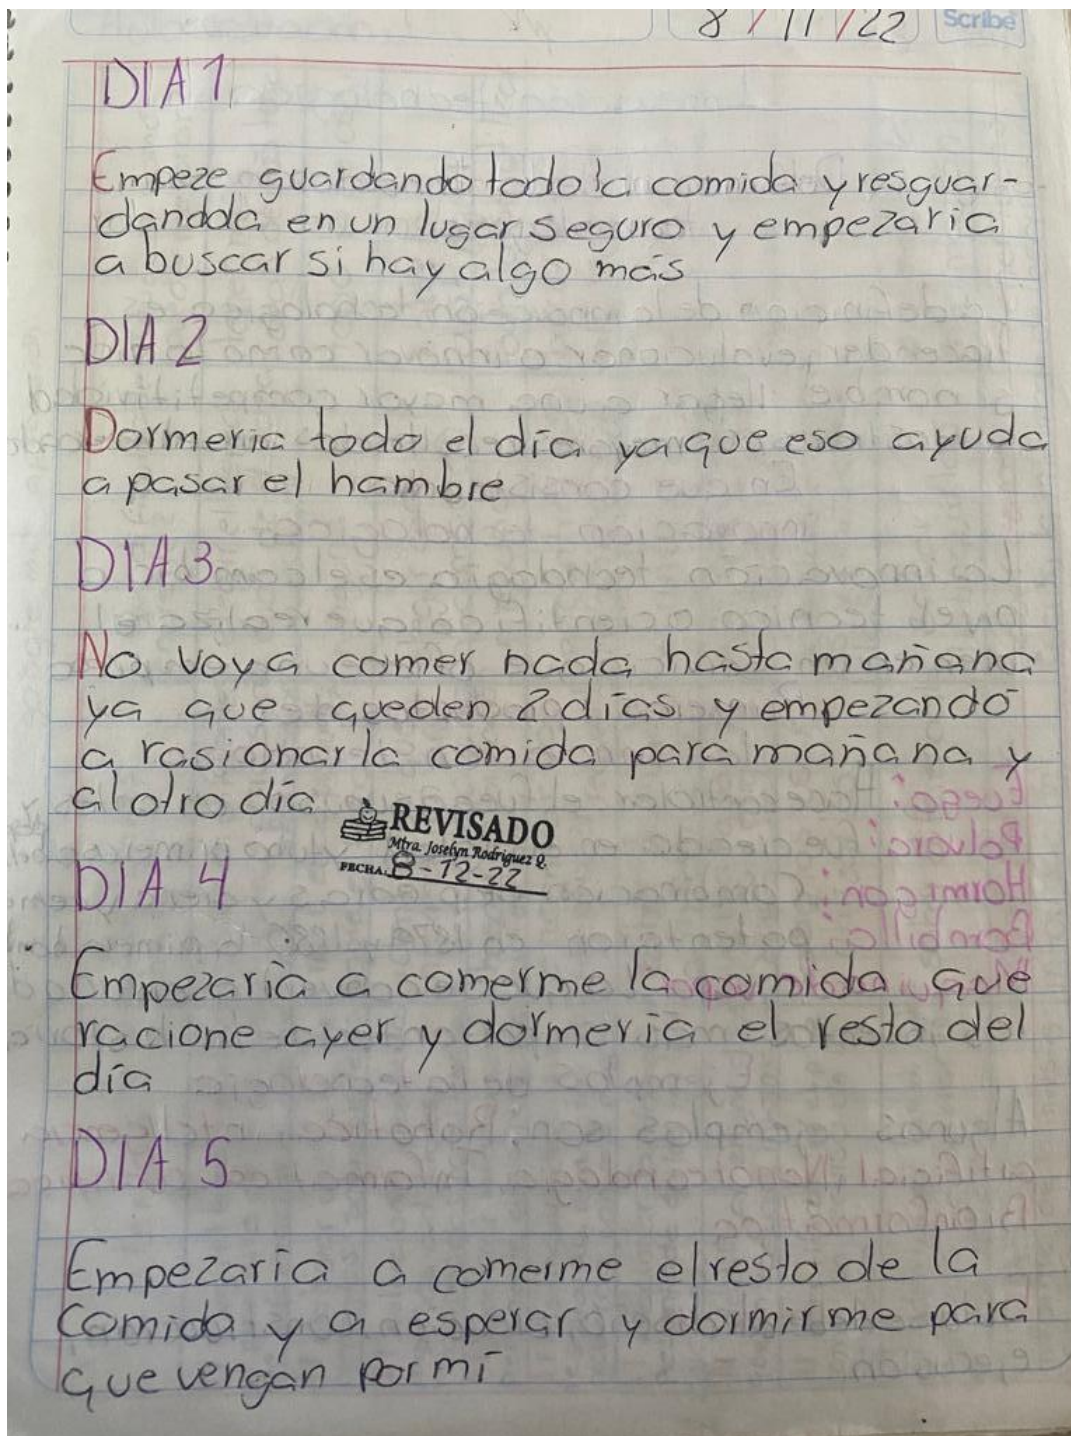 8/11/22
Scribe
DIA 1
Empeze guardando todo la comida y resguar-
dandola en un lugar seguro y empezaria
a buscar si hay algo más
DIA 2
Dormeria todo el día ya que eso ayuda
a pasar el hambre
DIA 3
No voy a comer nada hasta mañana
ya que queden 2 días y empezando
a rasionar la comida para mañana y
al otro día
REVISADO
Mtra. Joselyn Rodriguez Q.
FECHA: 8-12-22
DIA 4
Empezaria a comerme la comida que
racione ayer y dormeria el resto del
día
DIA 5
Empezaria a comerme el resto de la
comida y a esperar y dormirme para
que vengan por mi